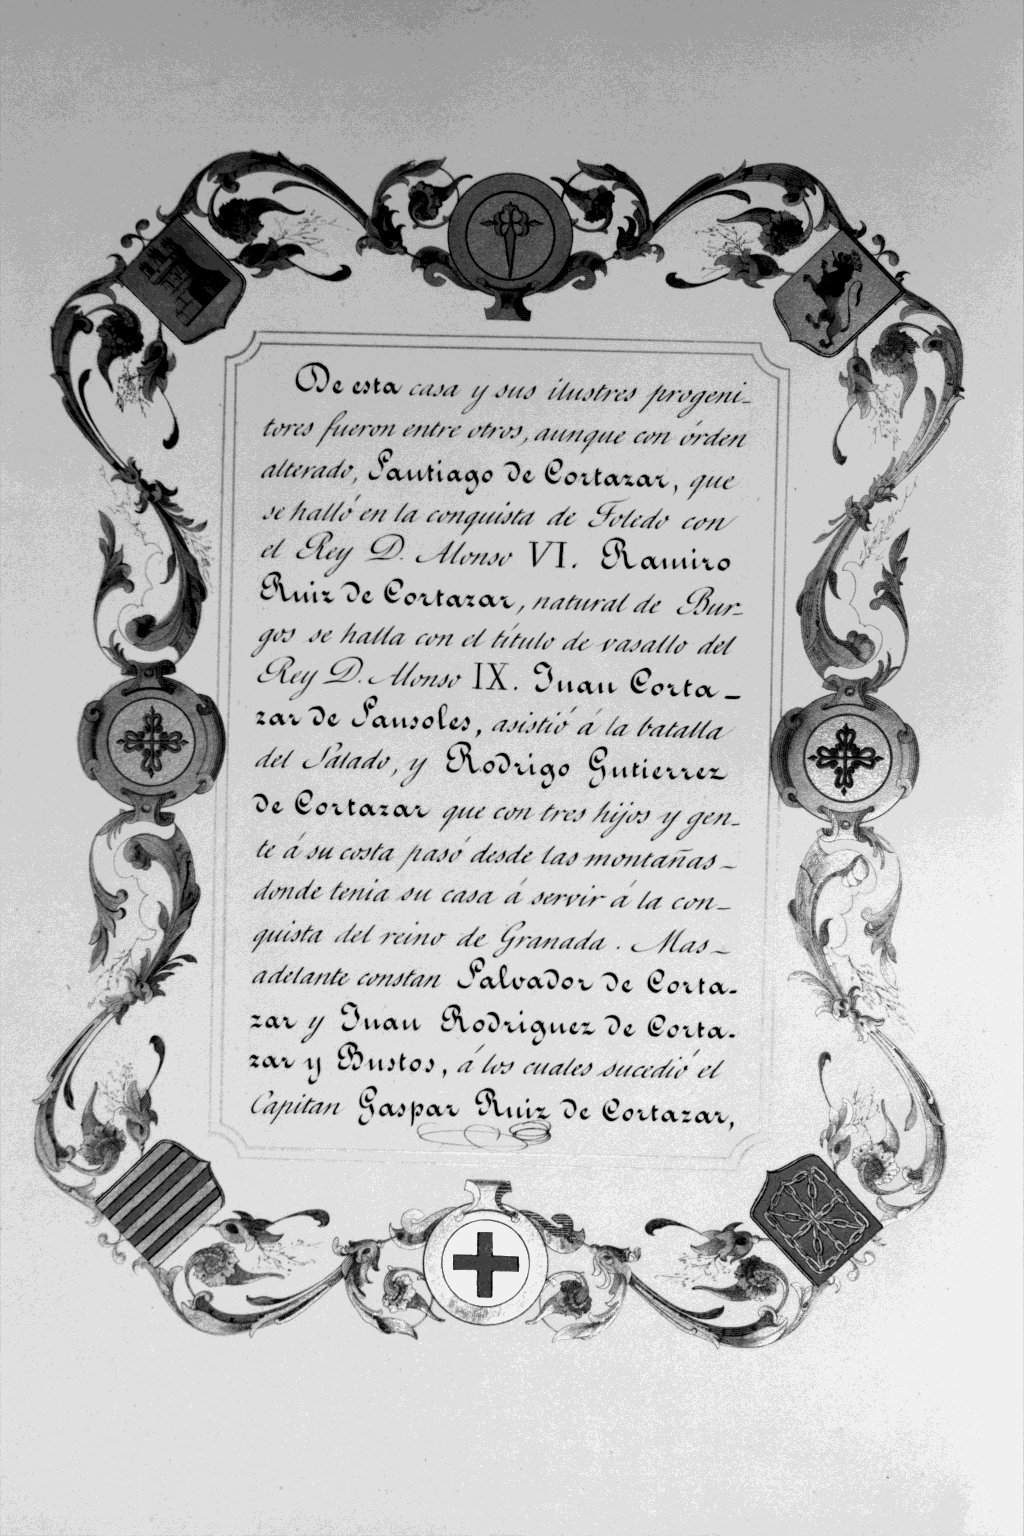 De esta casa y sus ilustres progeni-
tores fueron entre otros, aunque con órden
alterado, Santiago de Cortazar, que
se halló en la conquista de Toledo con
el Rey D. Alonso VI. Ramiro
Ruiz de Cortazar, natural de Bur-
gos se halla con el título de vasallo del
Rey D. Alonso IX. Juan Corta-
zar de Sansoles, asistió á la batalla
del Salado, y Rodrigo Gutierrez
de Cortazar que con tres hijos y gen-
te á su costa pasó desde las montañas-
donde tenia su casa á servir á la con-
quista del reino de Granada. Mas-
adelante constan Salvador de Corta-
zar y Juan Rodriguez de Corta-
zar y Bustos, á los cuales sucedió el
Capitan Gaspar Ruiz de Cortazar,